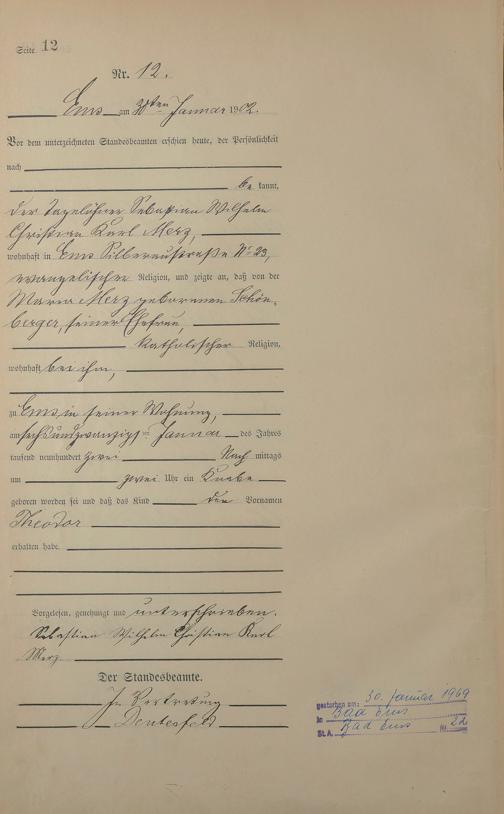 Seite 12
Nr. 12.
Ems am 30ten Januar 1902.
Vor dem unterzeichneten Standesbeamten erschien heute, der Persönlichkeit
nach
be kannt,
der Tagelöhner Sebastian Wilhelm
Christian Karl Merz,
wohnhaft in Ems Silberaustraße No 23,
evangelischer Religion, und zeigte an, daß von der
Maria Merz geborenen Schön-
berger, seiner Ehefrau,
katholischer Religion,
wohnhaft bei ihm,
zu Ems in seiner Wohnung,
am sechsundzwanzigsten Januar des Jahres
tausend neunhundert zwei Nach mittags
um zwei Uhr ein Knabe
geboren worden sei und daß das Kind den Vornamen
Theodor
erhalten habe.
Vorgelesen, genehmigt und unterschrieben.
Sebastian Wilhelm Christian Karl
Merz
Der Standesbeamte.
In Vertretung
gestorben am: 30. Januar 1969
in Bad Ems
St. A. Bad Ems Nr. 22